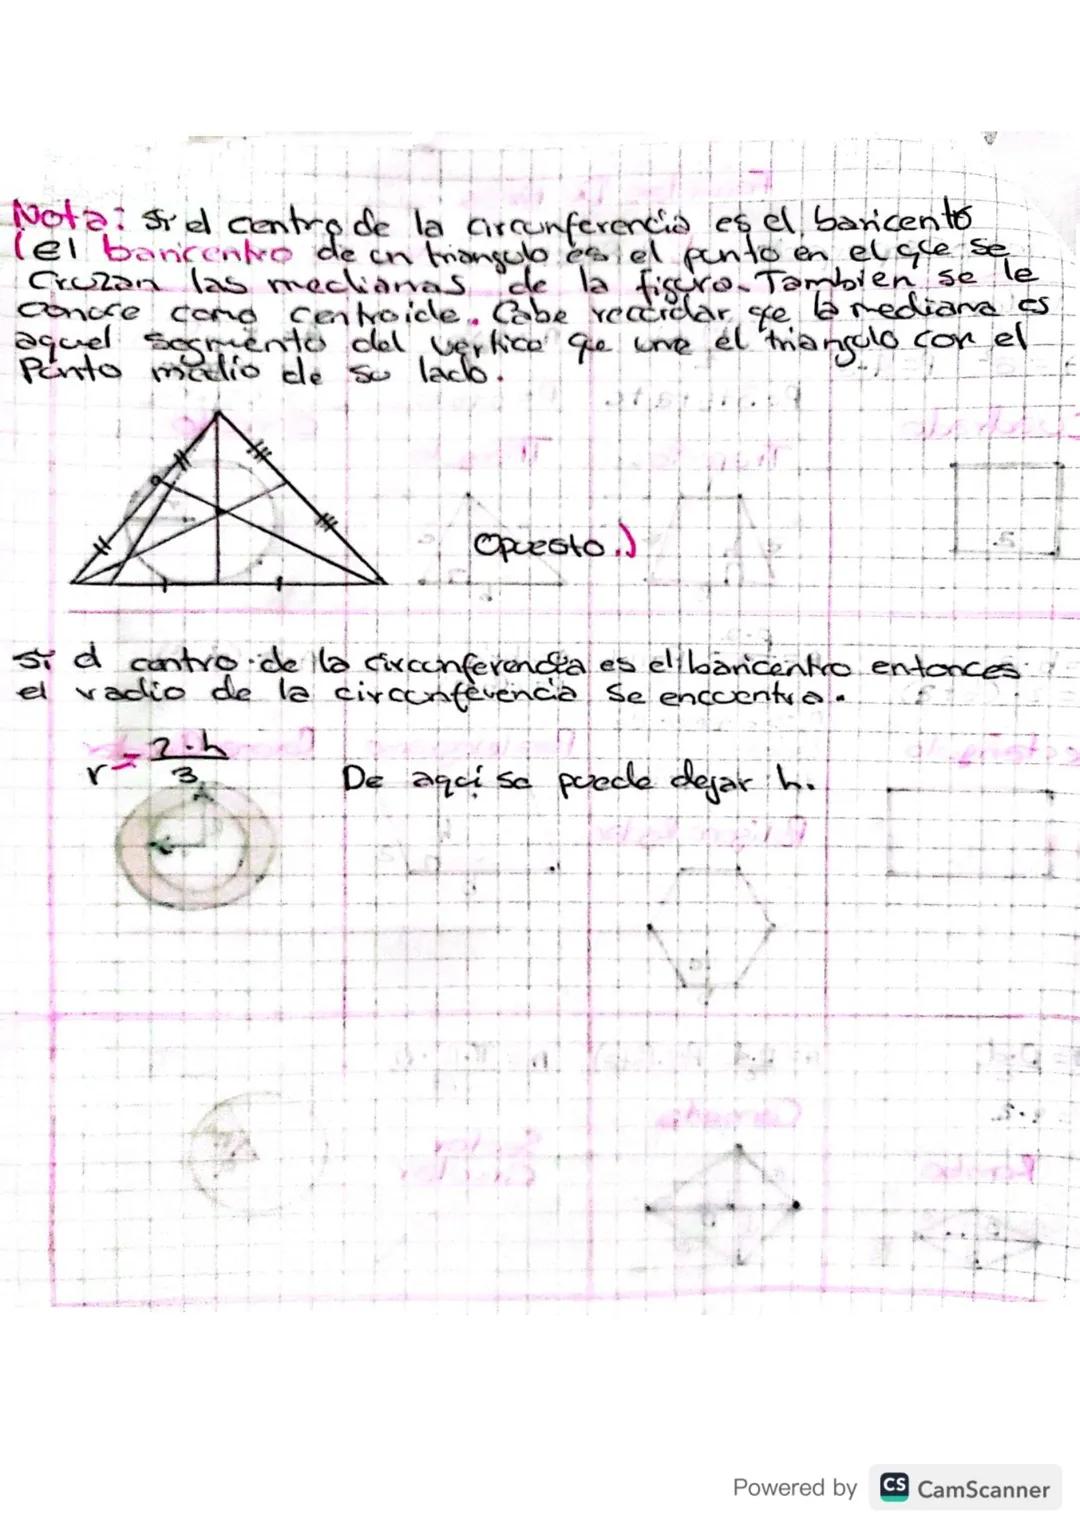 Nota: Si el centro de la circunferencia es el baricento
(el baricentro de un triangulo es el punto en el que se
Cruzan las medianas de la figura. Tambien se le
conoce como centroide. Cabe recordar qe la mediana es
aquel segmento del vertice qe une el triangulo con el
Punto medio de su lado.
opuesto.)
Si el centro de la circunferencia es el baricentro entonces
el radio de la circunferencia se encuentra.
r = 2·h
3
De aquí se puede dejar h.
Powered by CS CamScanner